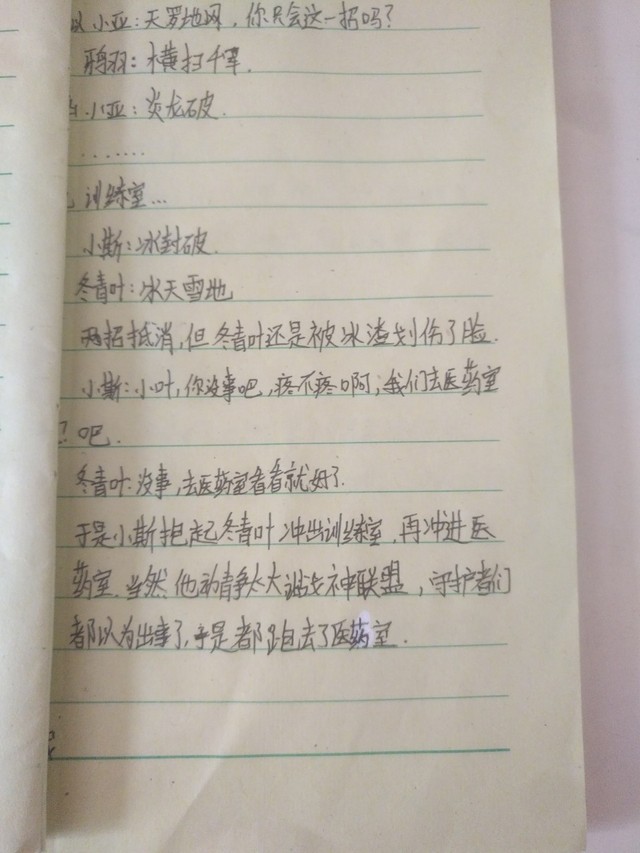 小亚:天罗地网,你只会这一招吗?
鸦羽:横扫千军.
小亚:炎龙破.
.......
训练室...
小斯:冰封破.
冬青叶:冰天雪地
两招抵消,但冬青叶还是被冰渣划伤了脸.
小斯:小叶,你没事吧,疼不疼啊,我们去医药室
吧.
冬青叶:没事,去医药室看看就好了.
于是小斯抱起冬青叶冲出训练室,再冲进医
药室.当然,他动静太大,战神联盟,守护者们
都以为出事了,于是都跑去了医药室.